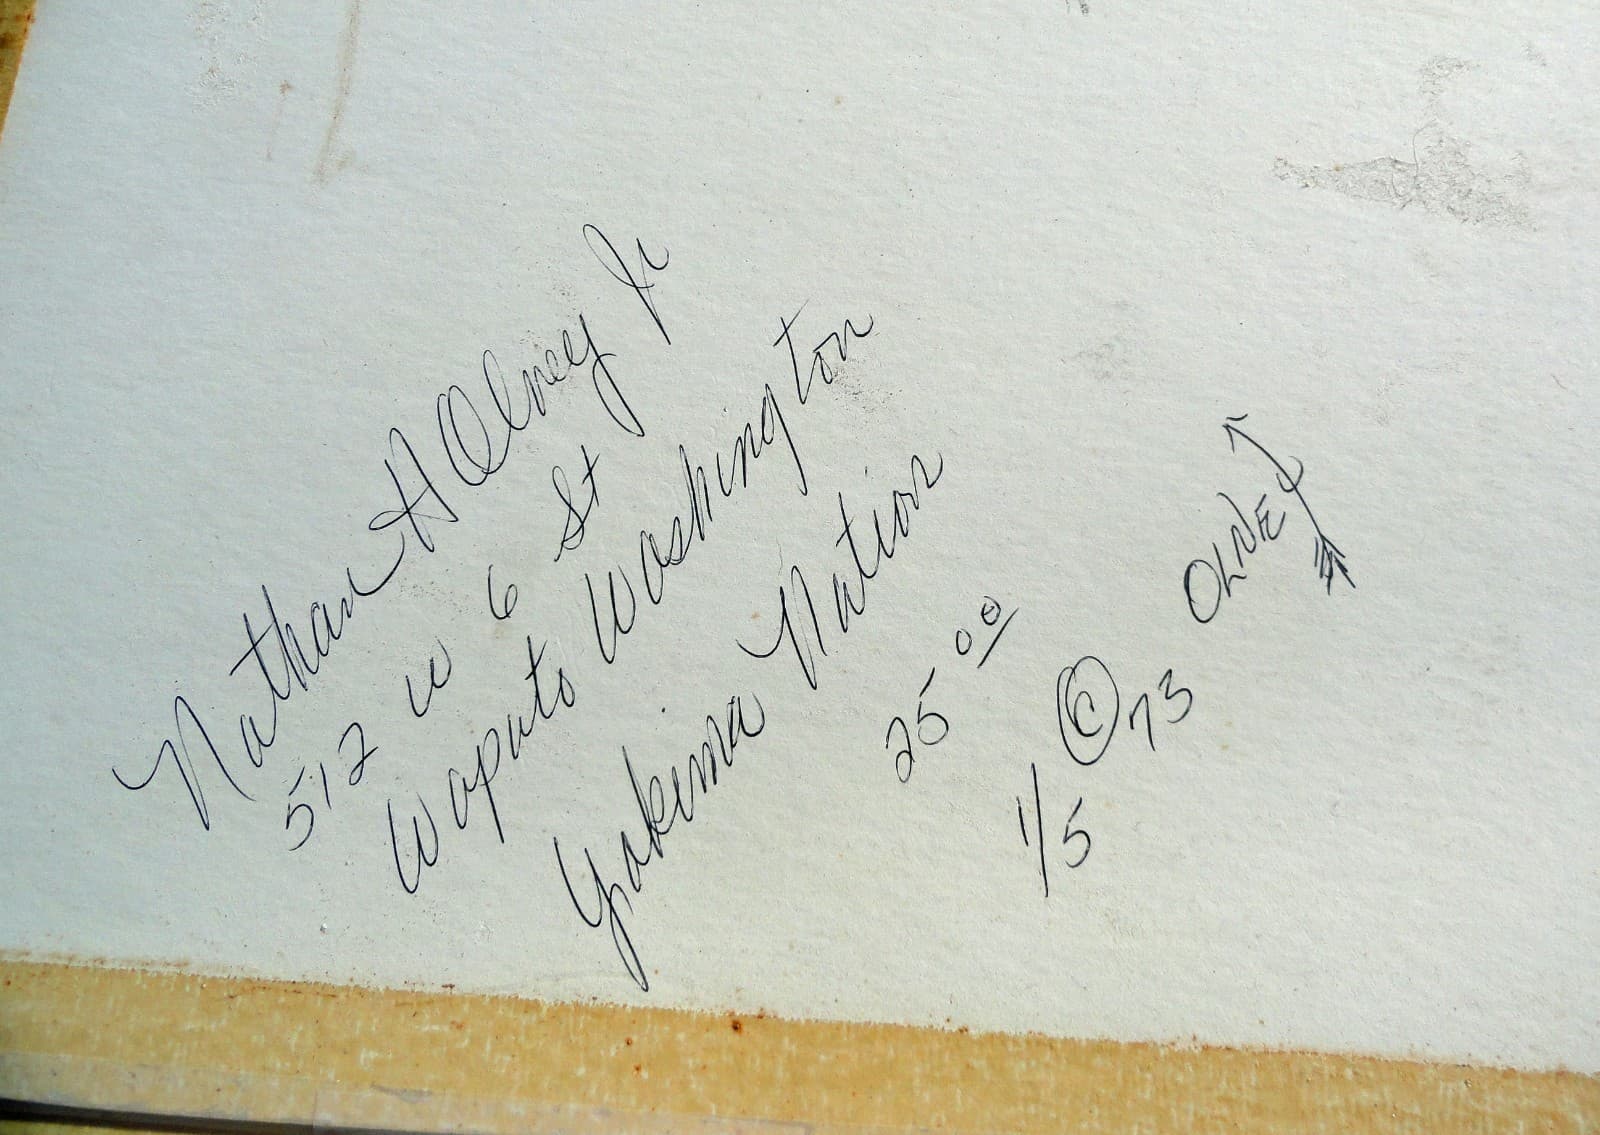 Nathan H Olney Jr
512 W 6 St
Wapato Washington
Yakima Nation
25 00
1/5 © 73 OLNEY